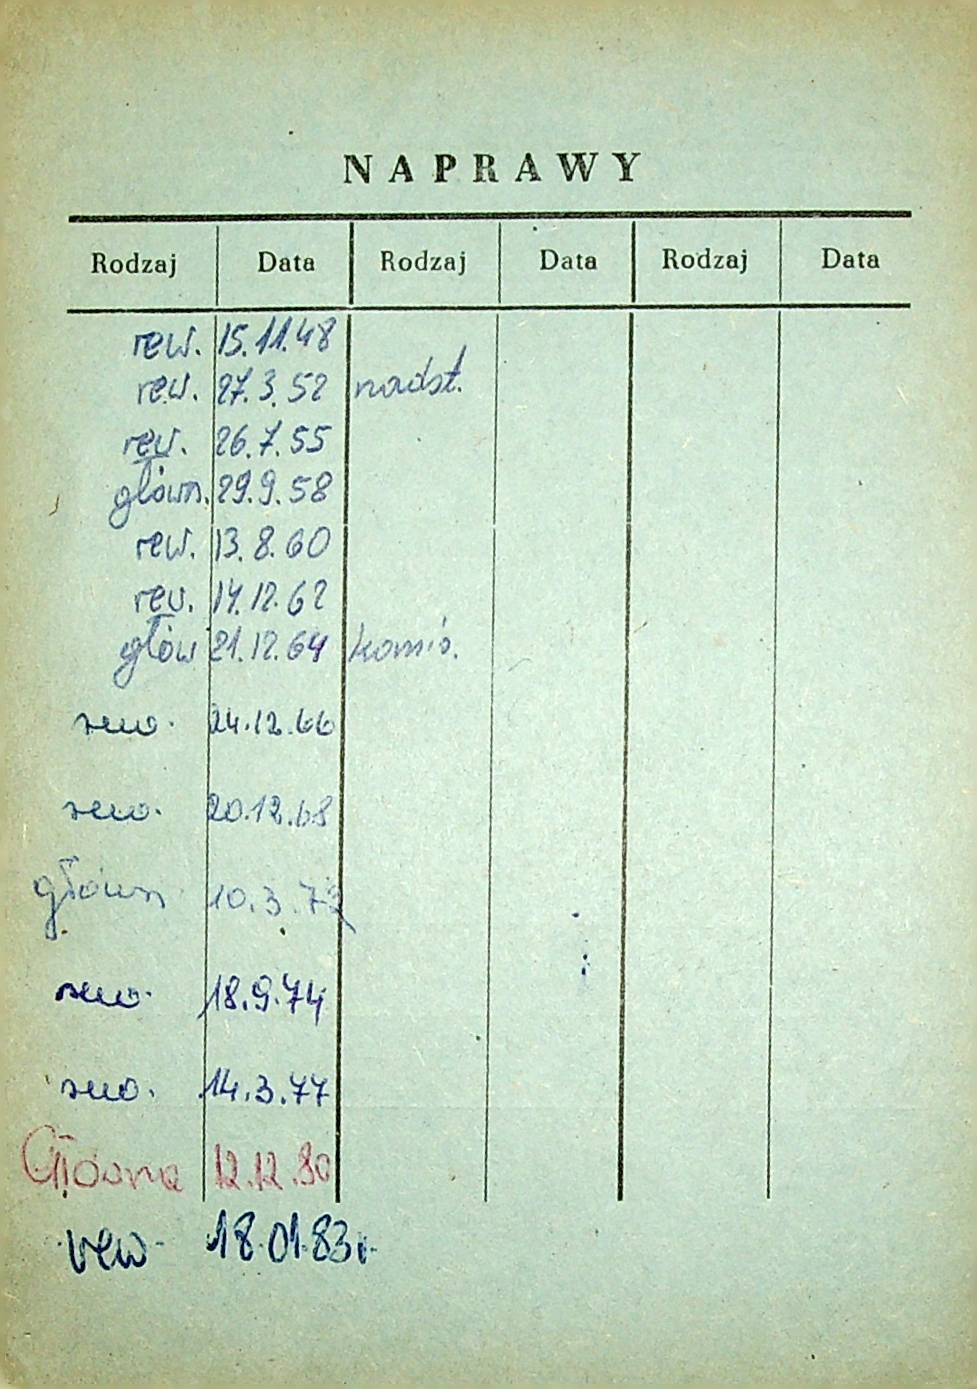 NAPRAWY
Rodzaj Data Rodzaj Data Rodzaj Data
rew. 15.11.48
rew. 27.3.52 nadst.
rew. 26.7.55
główn. 29.9.58
rew. 13.8.60
rew. 14.12.62
głów 21.12.64
rew. 24.12.66
rew. 20.12.68
główn 10.3.72
rew. 18.9.74
rew. 14.3.77
Główna 12.12.80
rew. 18.01.83r.